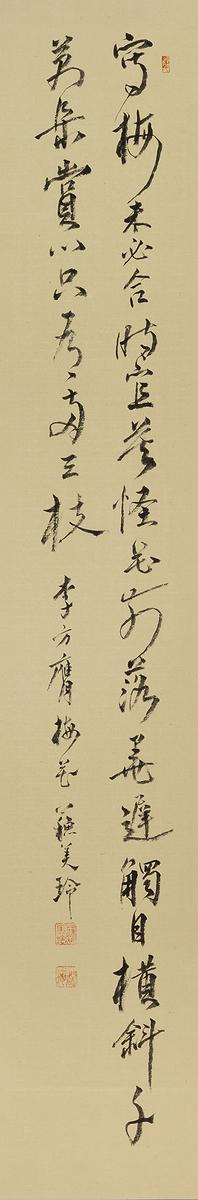 寫梅未必合時宜莫怪花前落筆遲觸目橫斜千
萬朵賞心只有兩三枝 李方膺梅花 蘇美玲